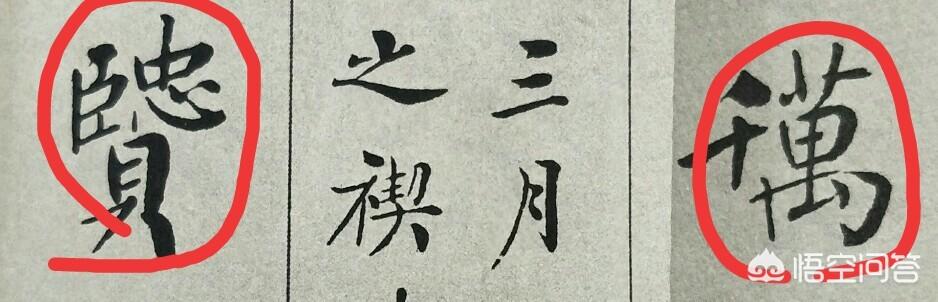 萬
三月
之禊
䝨
悟空问答